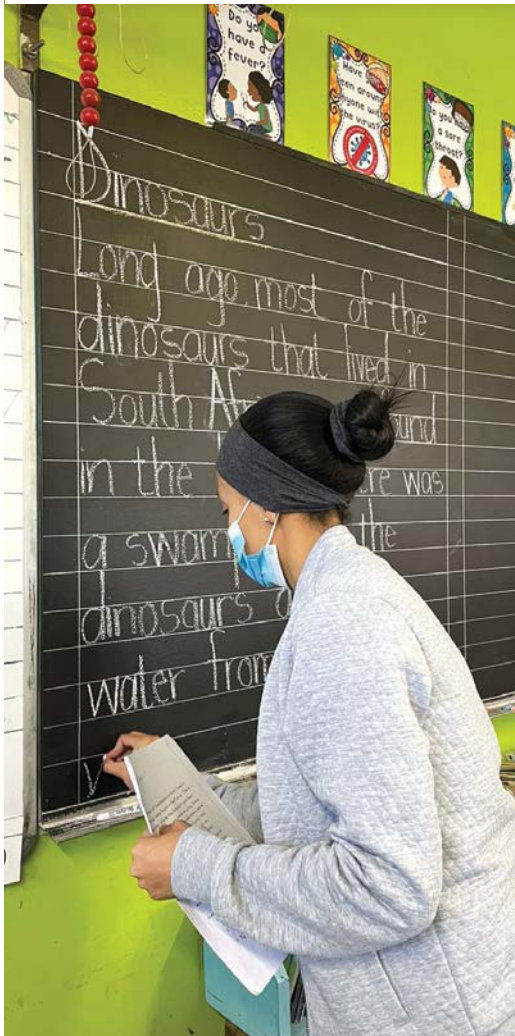 Do you
have a
fever?
Have
been around
anyone with
the virus?
you have
a sore
throat?
Dinosaurs
Long ago most of the
dinosaurs that lived in
South
in the was
a the
dinosaurs
water from